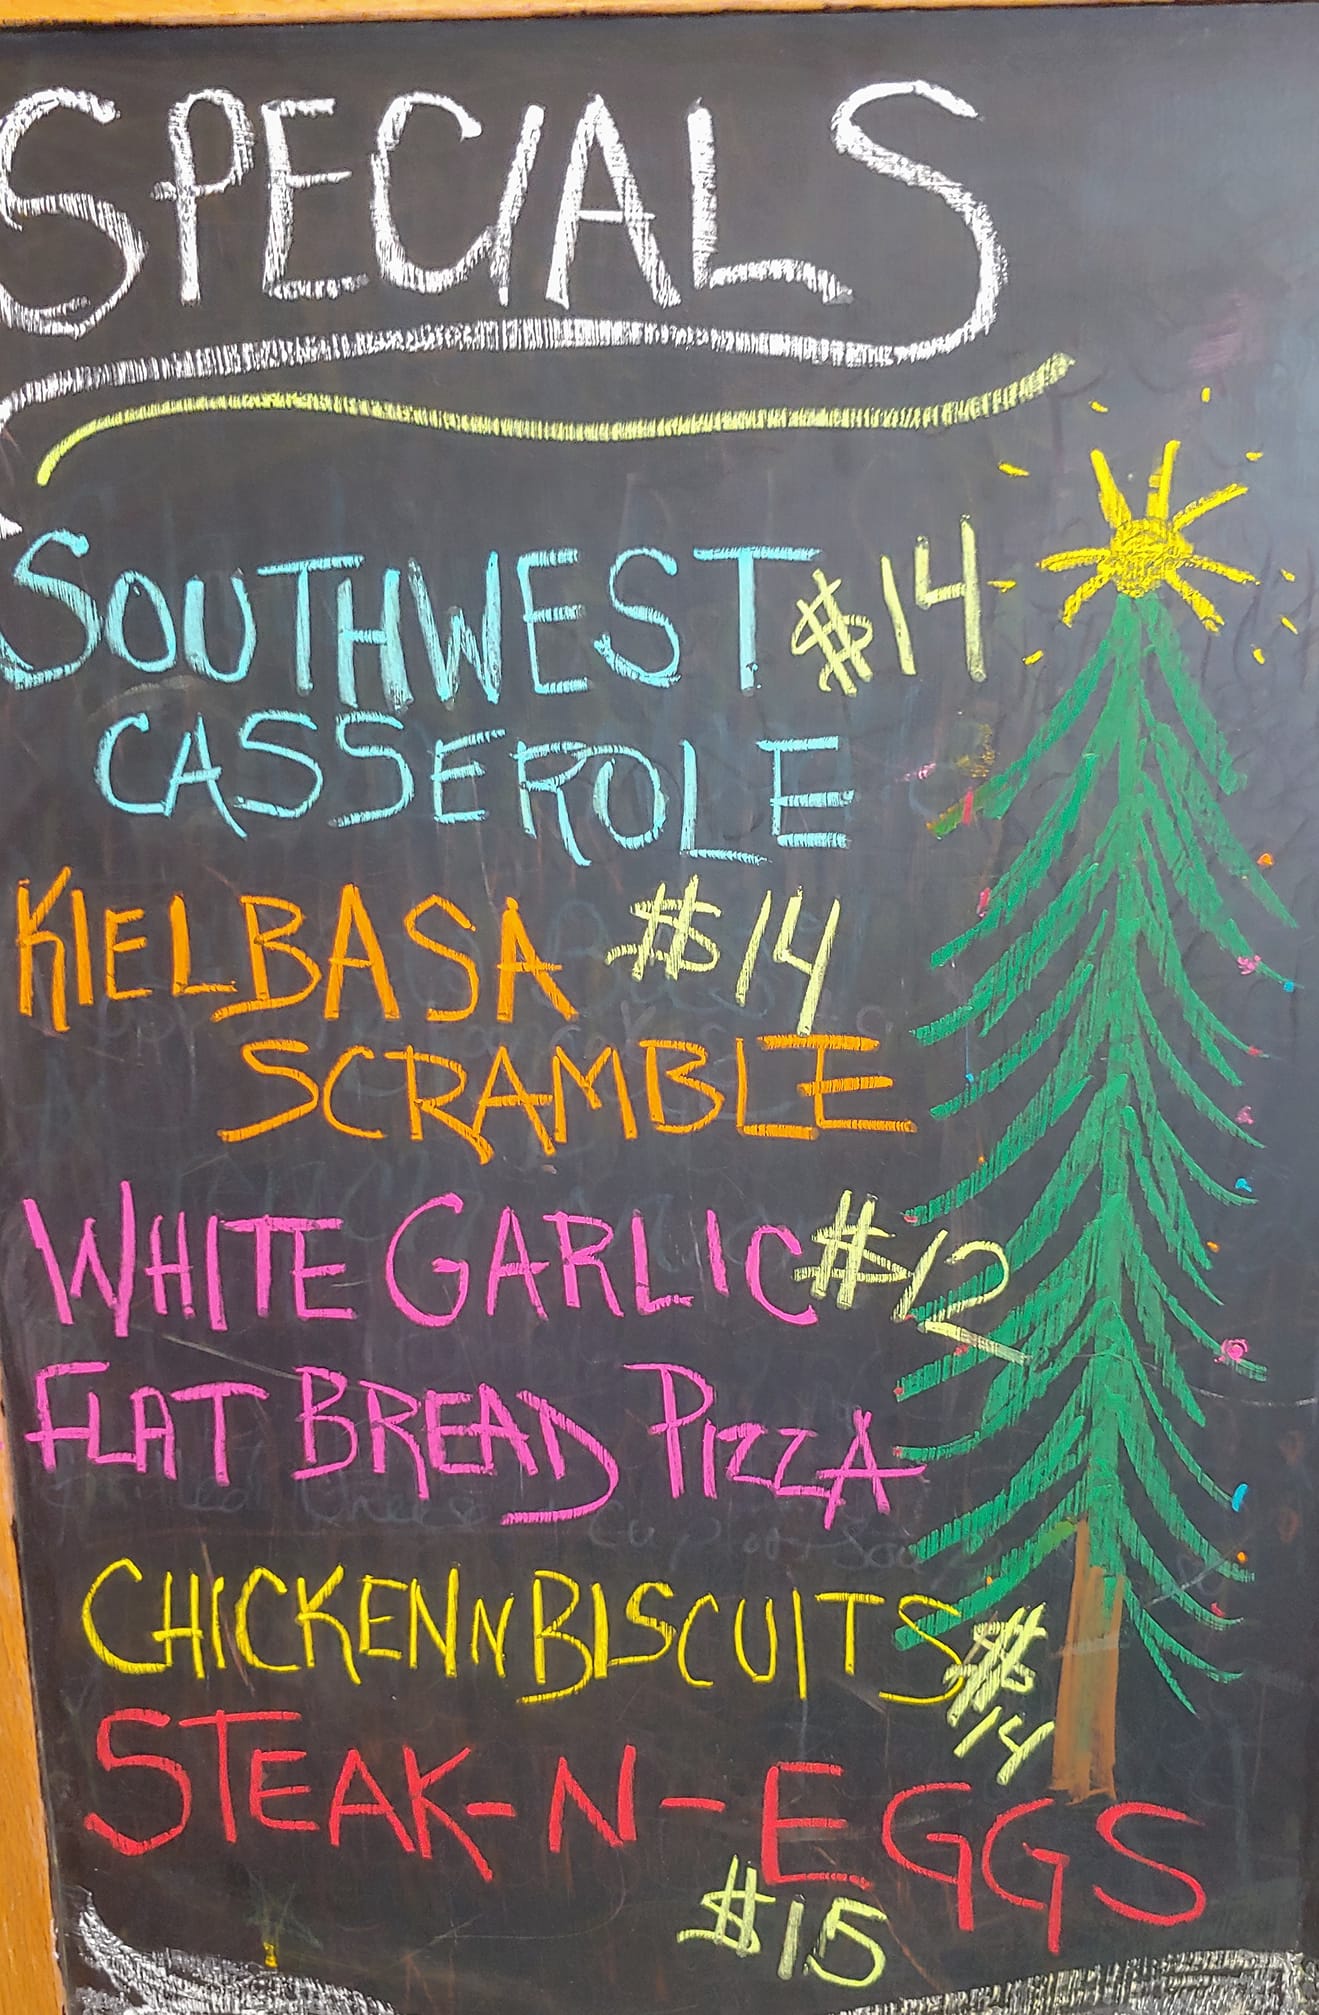 SPECIALS
SOUTHWEST $14
CASSEROLE
KIELBASA $14
SCRAMBLE
WHITE GARLIC $12
FLAT BREAD PIZZA
CHICKEN N BISCUITS $
14
STEAK-N-EGGS
$15